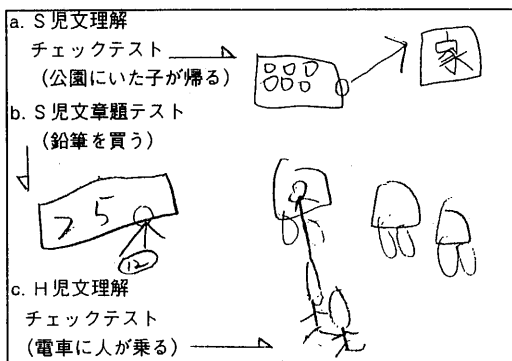 a. S児文理解
チェックテスト
(公園にいた子が帰る)
家
b. S児文章題テスト
(鉛筆を買う)
75
12
c. H児文理解
チェックテスト
(電車に人が乗る)